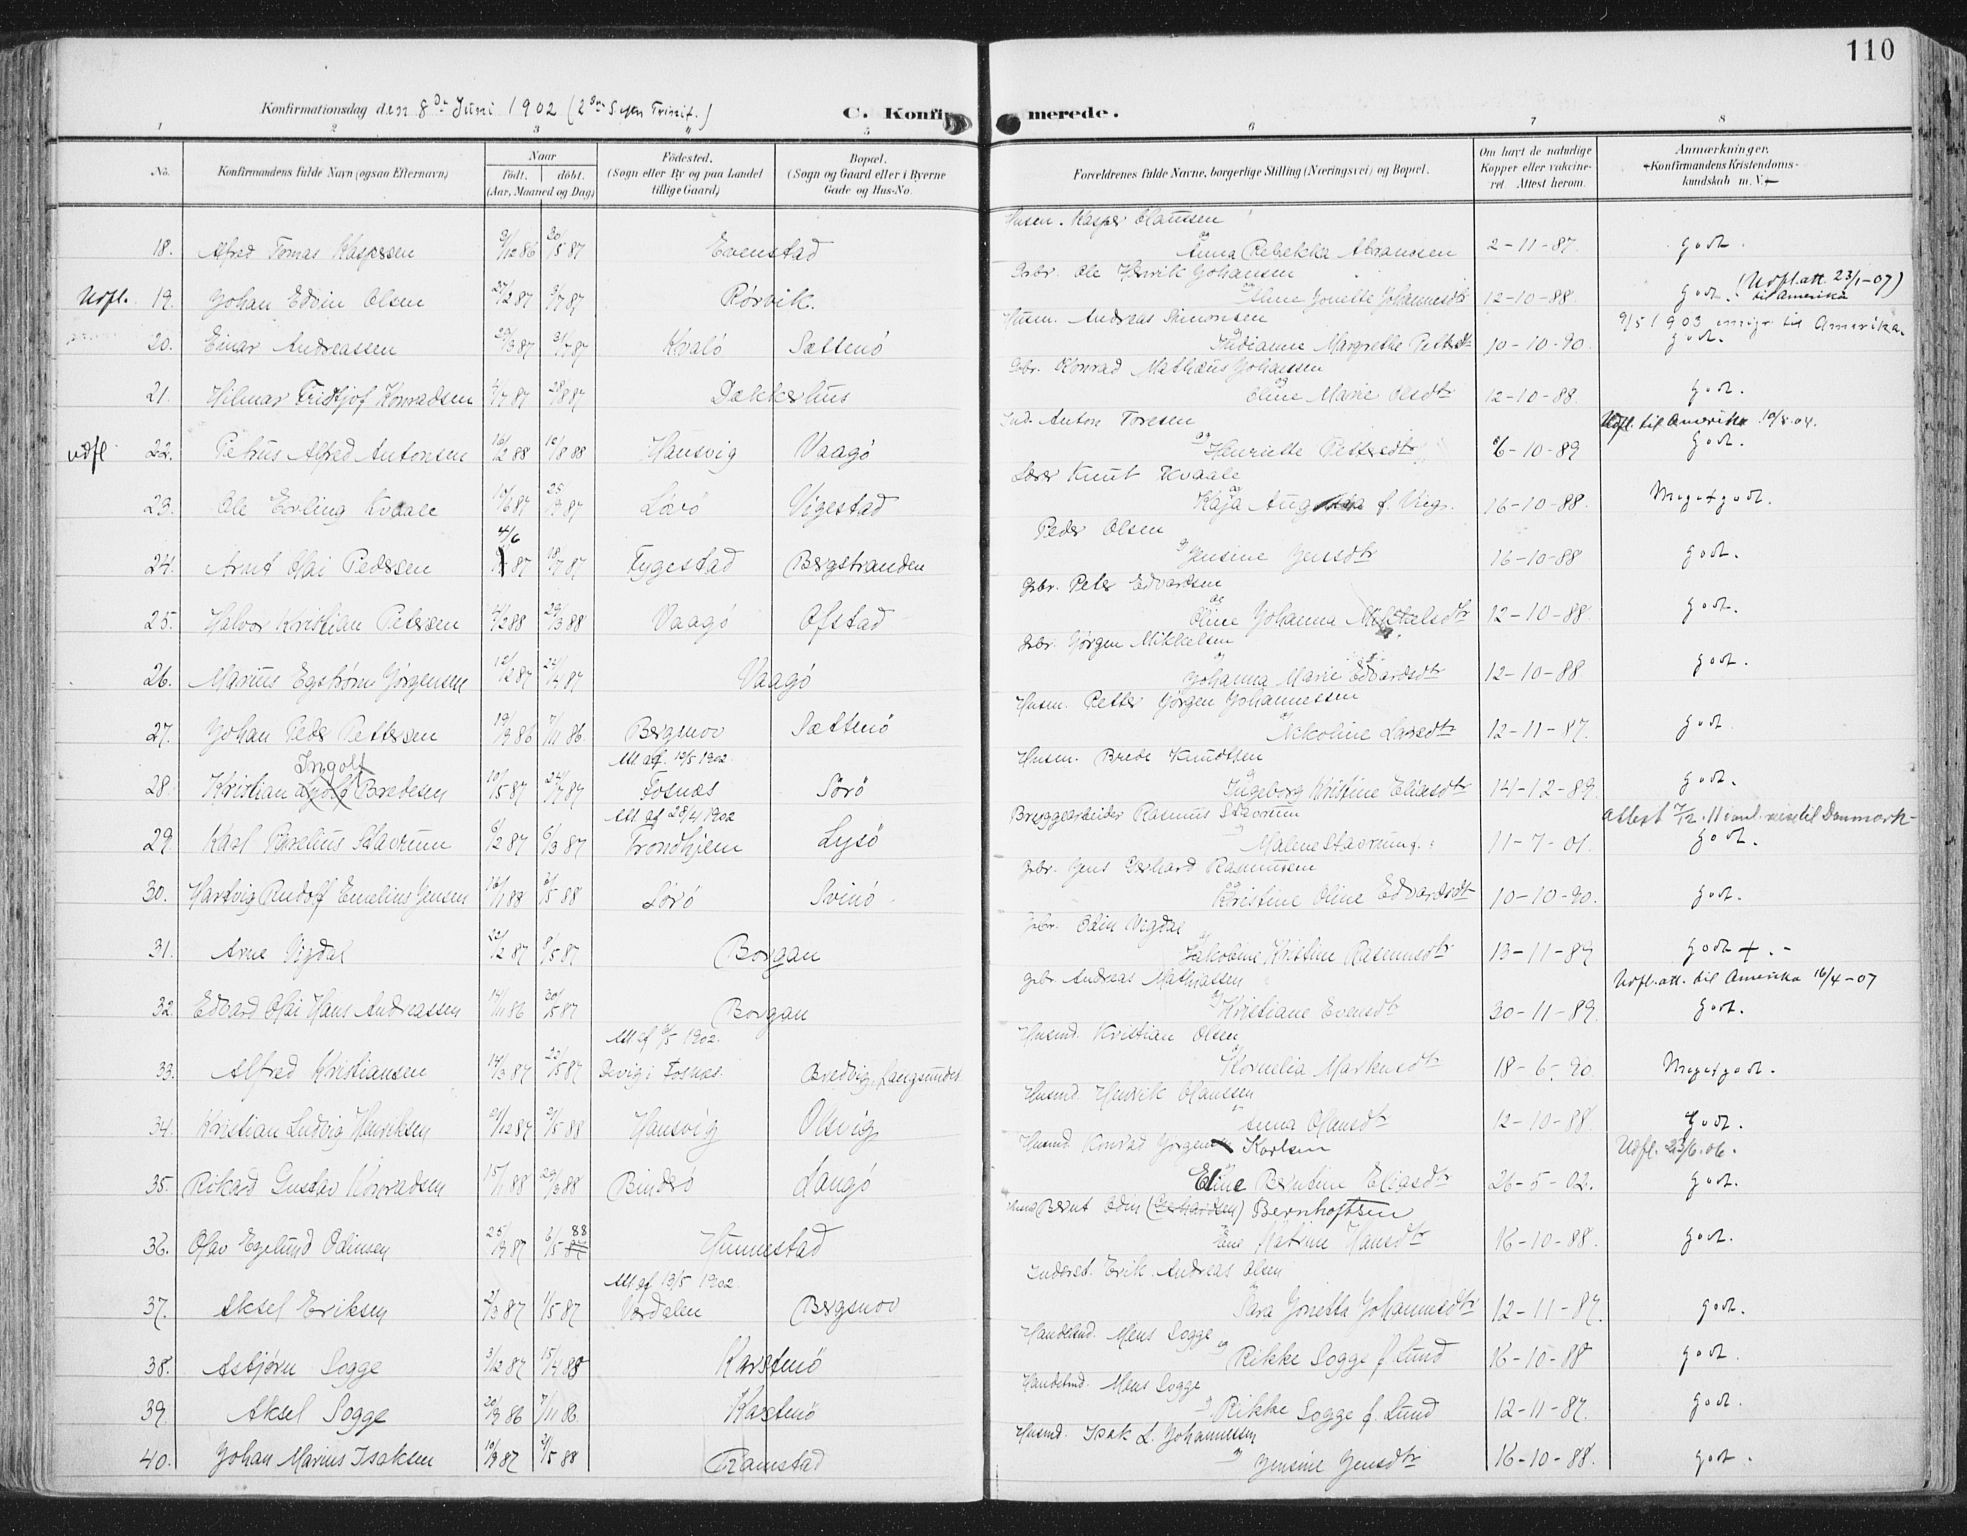 110
Konfirmationsdag den 8de Juni 1902 (2den S. efter Trinit.) C. Konfirmerede.
1 2 3 4 5 6 7 8
No. Konfirmandens fulde Navn (ogsaa Efternavn) Naar født. døbt. (Aar, Maaned og Dag) Födested. (Sogn eller By og paa Landet tillige Gaard) Bopæl. (Sogn og Gaard eller i Byerne Gade og Hus-No. Forældrenes fulde Navne, borgerlige Stilling (Næringsvei) og Bopæl. Om havt de naturlige Kopper eller vakcineret. Attest herom. Anmærkninger. Konfirmandens Kristendomskundskab m. V.
Husm. Kasper Olaussen
18. Alfred Tomas Kaspersen 9/12 86 20/5 87 Evenstad og Anna Rebekka Abramsen 2-11-87 godt.
Gbr. Ole Henrik Johansen (Udfl.att. 23/1-07)
Udfl. 19. Johan Edvin Olsen 27/2 87 3/7 87 Rørvik. Oline Jonette Johannesdtr 12-10-88. godt. til Amerika
Husm. Andreas Simonsen 9/5 1903 emigr. til Amerika.
20. Einar Andreassen 29/3 87 31/7 87 Kvalø Sættenø Indianne Margrethe Pettersdtr 10-10-90. godt.
Gbr. Konrad Mathæus Johansen
21. Hilmar Fridtjof Konradsen 4/7 87 28/8 87 Dækkerhus og Oline Marie Olsdtr 12-10-88. godt.
Ind. Anton Toresen Udfl. til Amerika 10/8.04.
udfl 22. Petrus Alfred Antonsen 16/2 88 19/8 88 Hansvig Vaagø og Henriette Pettersdtr 6-10-89 godt.
Lærer Knut Kvaale
23. Ole Erling Kvaale 10/6 87 25/9 87 Lovø Vigestad og Kaja Augusta f. Vieg. 16-10-88. Megetgodt.
Peder Olsen
4/6
24. Arnt Olai Pedersen 87 18/9 87 Fygestad Bergstranden og Jensine Jensdtr 16-10-88 godt.
Gbr. Peter Edvardsen
25. Halvor Kristian Petersen 4/2 88 29/3 88 Vaagø Ofstad og Oline Johanna Mikkelsdtr 12-10-88. godt.
Gbr. Jørgen Mikkelsen
26. Marius Egstrøm Jørgensen 12/2 87 24/4 87 Vaagø og Johanna Marie Edvardsdtr 12-10-88 godt.
Husm. Petter Jørgen Johannessen
27. Johan Peder Pettersen 19/9 86 7/11 86. Bergsnov Sættenø Nikoline Larsdtr 12-11-87. godt
Ingolf Att. af 19/5 1902. Husm. Brede Knudtsen
28. Kristian Bredesen 10/5 87 24/7 87 Fosnæs Sørø og Ingeborg Kristine Eliasdtr 14-12-89. godt.
Att. af 28/4 1902 Bryggearbeider Rasmus Stavrum attest 7/12.11 anl. reise til Danmark
29. Karl Parelius Stavrum 6/2 87 6/3 87 Trondhjem Lysø og Malene Stavrum f. 11-7-01. godt.
Gbr. Jens Gerhard Rasmussen
30. Hartvig Rudolf Emelius Jensen 16/1 88 6/5 88 Sørø Svinø og Kristine Oline Edvardsdtr 10-10-90. godt.
Gbr. Odin Vigdal
31. Arne Vigdal 22/2 87 8/5 87 Borgan og Jakobine Kristine Rasmusdtr 13-11-89 godt +.-
Gbr. Andreas Mathiassen Udfl. att. til Amerika 16/4-07
32. Edvard Olai Hans Andreassen 14/11 86 30/5 87 Borgan og Kristiane Evensdtr 30-11-89. godt.
Att af 6/5 1902. Husmd. Kristian Olsen
33. Alfred Kristiansen 14/3 87 20/5 87 Devig i Fosnæs. Bredvig, Langsundet og Kornelia Markusdtr 18-6-90 Megetgodt.
Husmd. Henrik Olaussen
34. Kristian Ludvig Henriksen 21/12 87 9/5 88 Hansvig Olsvig Anna Olausdtr 12-10-88. Godt.
Husmd. Konrad Jørgen Karlsen Udfl. 23/6.06.
35. Rikard Gustav Konradsen 15/1 88 29/3 88 Bindrø Langø Eline Berntine Eliasdtr 26-5-02. godt.
Bernt Odin (Gerhardsen) Bernhoftsen
36. Olav Egelund Odinsen 25/9 87 6/5 88 Hunnestad Ene Katrine Hansdtr 16-10-88. godt.
Att. af 19/5 1902. Inderst. Erik Andreas Olsen
37. Aksel Eriksen 2/3 87 1/5 87 Verdalen Bergsnov Sara Jonetta Johannesdtr 12-11-87. godt.
Handelsmd. Mens Sogge
38. Asbjørn Sogge 3/12 87 15/4 88 Karstnø og Rikke Sogge f. Lund 16-10-88 godt.
Handelsmd. Mens Sogge
39. Aksel Sogge 20/9 86 7/11 86. Karstnø og Rikke Sogge f. Lund 12-11-87. godt.
Husmd. Isak L. Johannessen
40. Johan Marius Isaksen 10/9 87 3/5 88 Framstad og Jensine Jensdtr 16-10-88. godt.